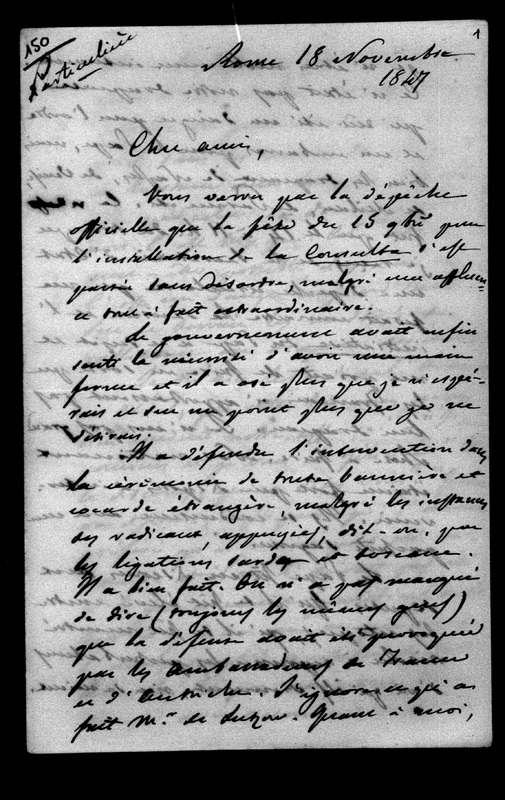 150
1
Particulière
Rome 18 Novembre
1847
Cher ami,
Vous verrez par la dépêche
officielle que la fête du 15 9bre pour
l'installation de la Consulta s'est
passée sans désordre, malgré une affluen-
ce tout à fait extraordinaire.
Le gouvernement avait enfin
senti la nécessité d'avoir une main
ferme et il a osé plus que je n'espé-
rais et sur un point plus que je ne
désirais.
Il a défendu l'intervention dans
la cérémonie de toute bannière et
cocarde étrangère, malgré les instances
des radicaux, appuyées, dit-on, par
les légations sarde et toscane.
Il a bien fait. On n'a pas manqué
de dire (toujours les mêmes gens)
que la défense avait été provoquée
par les Ambassadeurs de France
et d'Autriche. J'ignore ce qu'a
fait Mr. de Lutzow. Quant à moi,